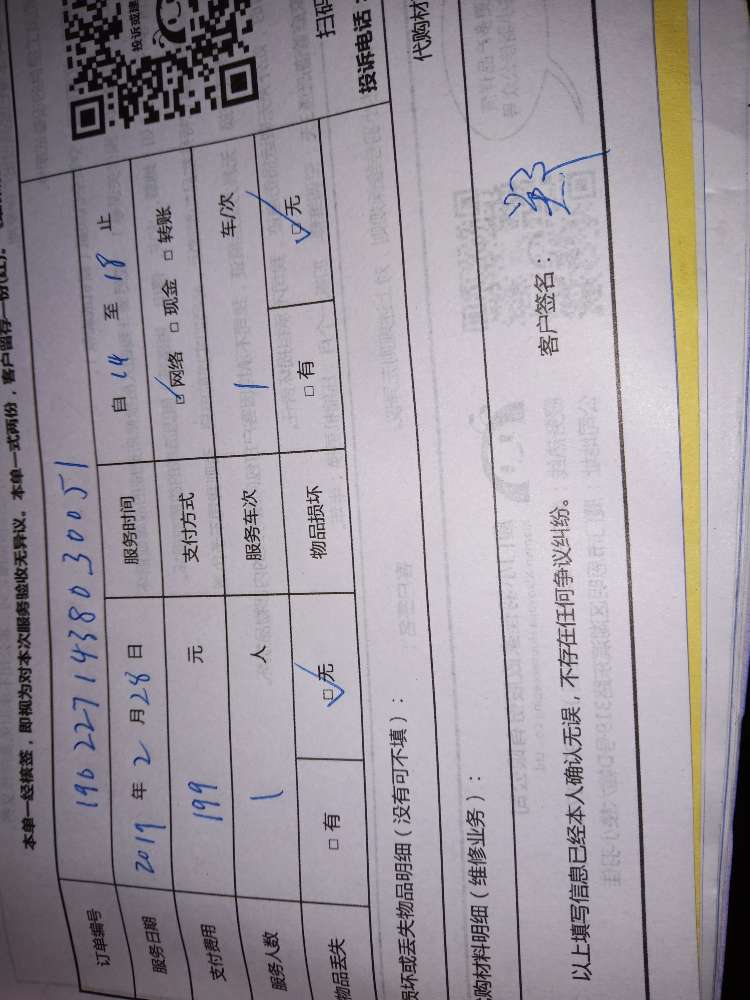 本单一经核签，即视为对本次服务验收无异议。本单一式两份，客户留存一份(红)。
投诉或建
扫码
投诉电话：
订单编号 190227143803 0051
服务日期 2019 年 2 月 28 日 服务时间 自 14 至 18 止
支付费用 199 元 支付方式 ☑ 网络 □ 现金 □ 转账
服务人数 1 人 服务车次 1 车/次
物品丢失 □ 有 ☑ 无 物品损坏 □ 有 ☑ 无
损坏或丢失物品明细（没有可不填）：
代购材
购材料明细（维修业务）：
以上填写信息已经本人确认无误，不存在任何争议纠纷。
客户签名：